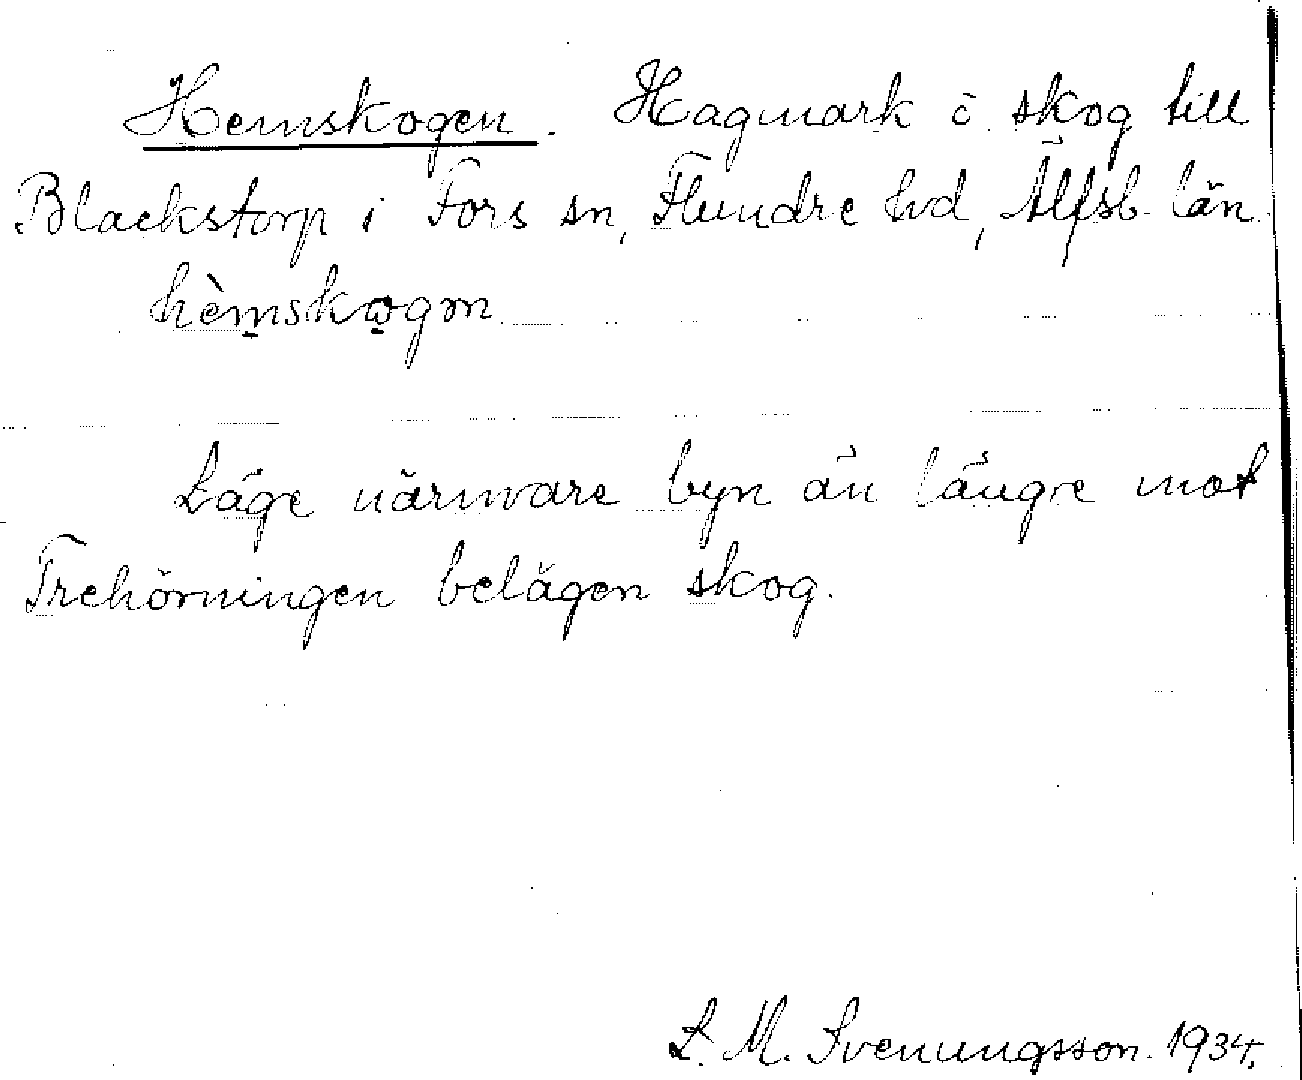 Hemskogen. Hagmark o. skog till
Blackstorp i Fors sn, Flundre hd, Älfsb. län.
hèmskogm
Läge närmare byn än längre mot
Trehörningen belägen skog.
L. M. Svenungsson. 1934.